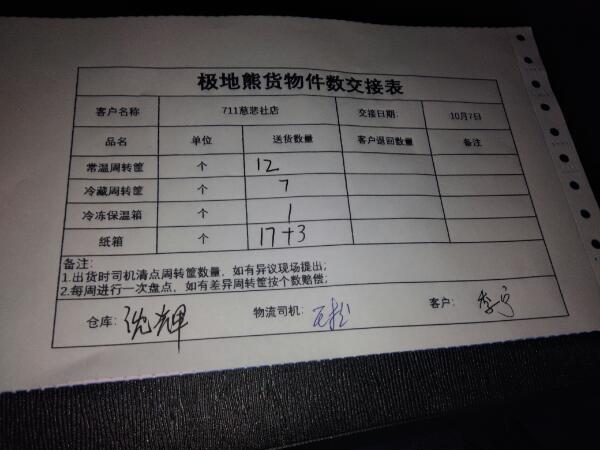 极地熊货物件数交接表
客户名称 711慈悲社店 交接日期: 10月7日
品名 单位 送货数量 客户退回数量 备注
常温周转筐 个 12
冷藏周转筐 个 7
冷冻保温箱 个 1
纸箱 个 17+3
备注:
1.出货时司机清点周转筐数量，如有异议现场提出;
2.每周进行一次盘点，如有差异周转筐按个数赔偿;
仓库: 物流司机: 客户: